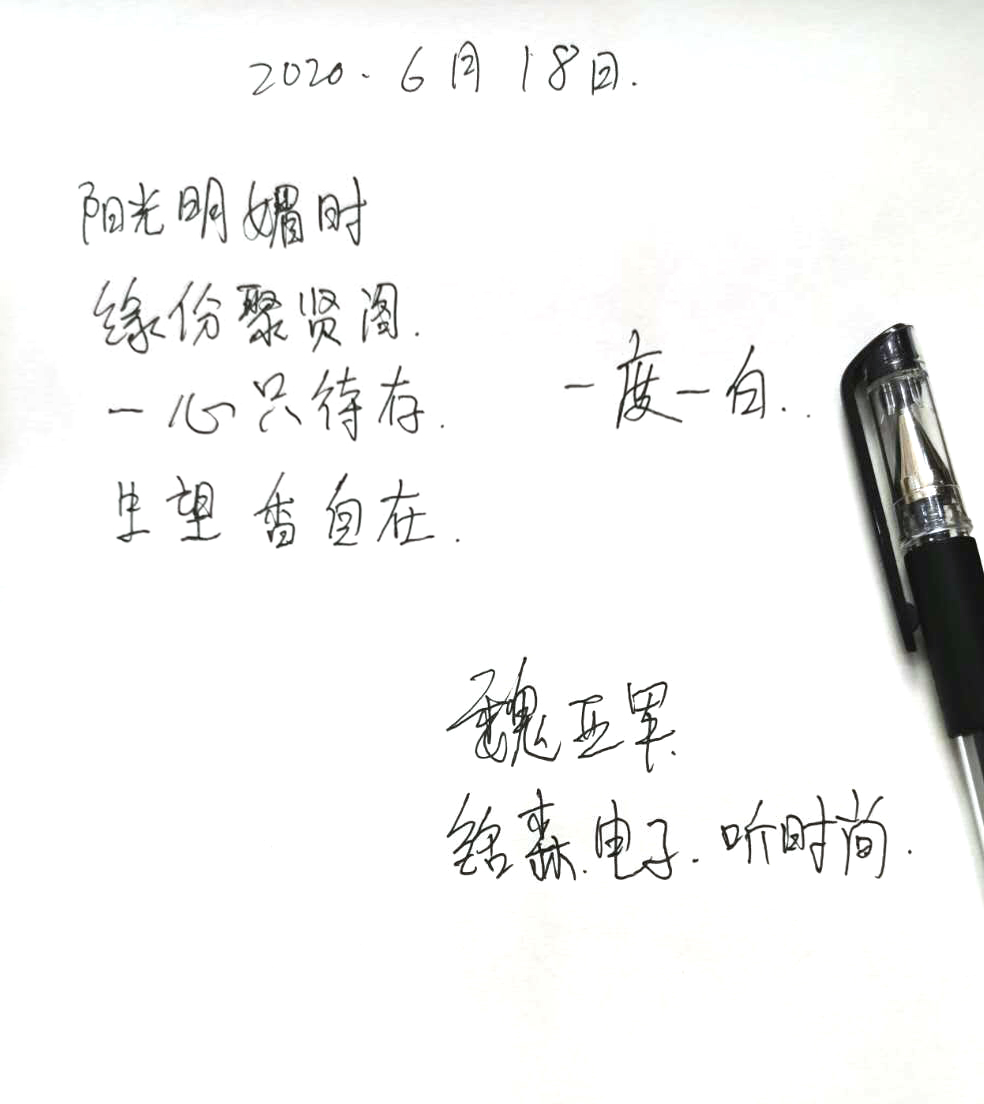 2020.6月18日.
阳光明媚时
缘份聚贤阁.
一心只待存.
一度一白..
生望香自在.
魏亚军.
铭森.电子.听时尚.